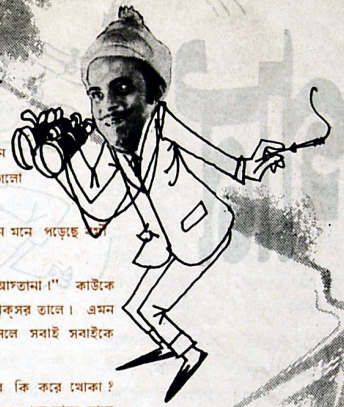 ন
লো
ন মনে পড়েছে
আস্তানা।" কাউকে
ক্সর তালে। এমন
সলে সবাই সবাইকে
র কি করে খোকা?